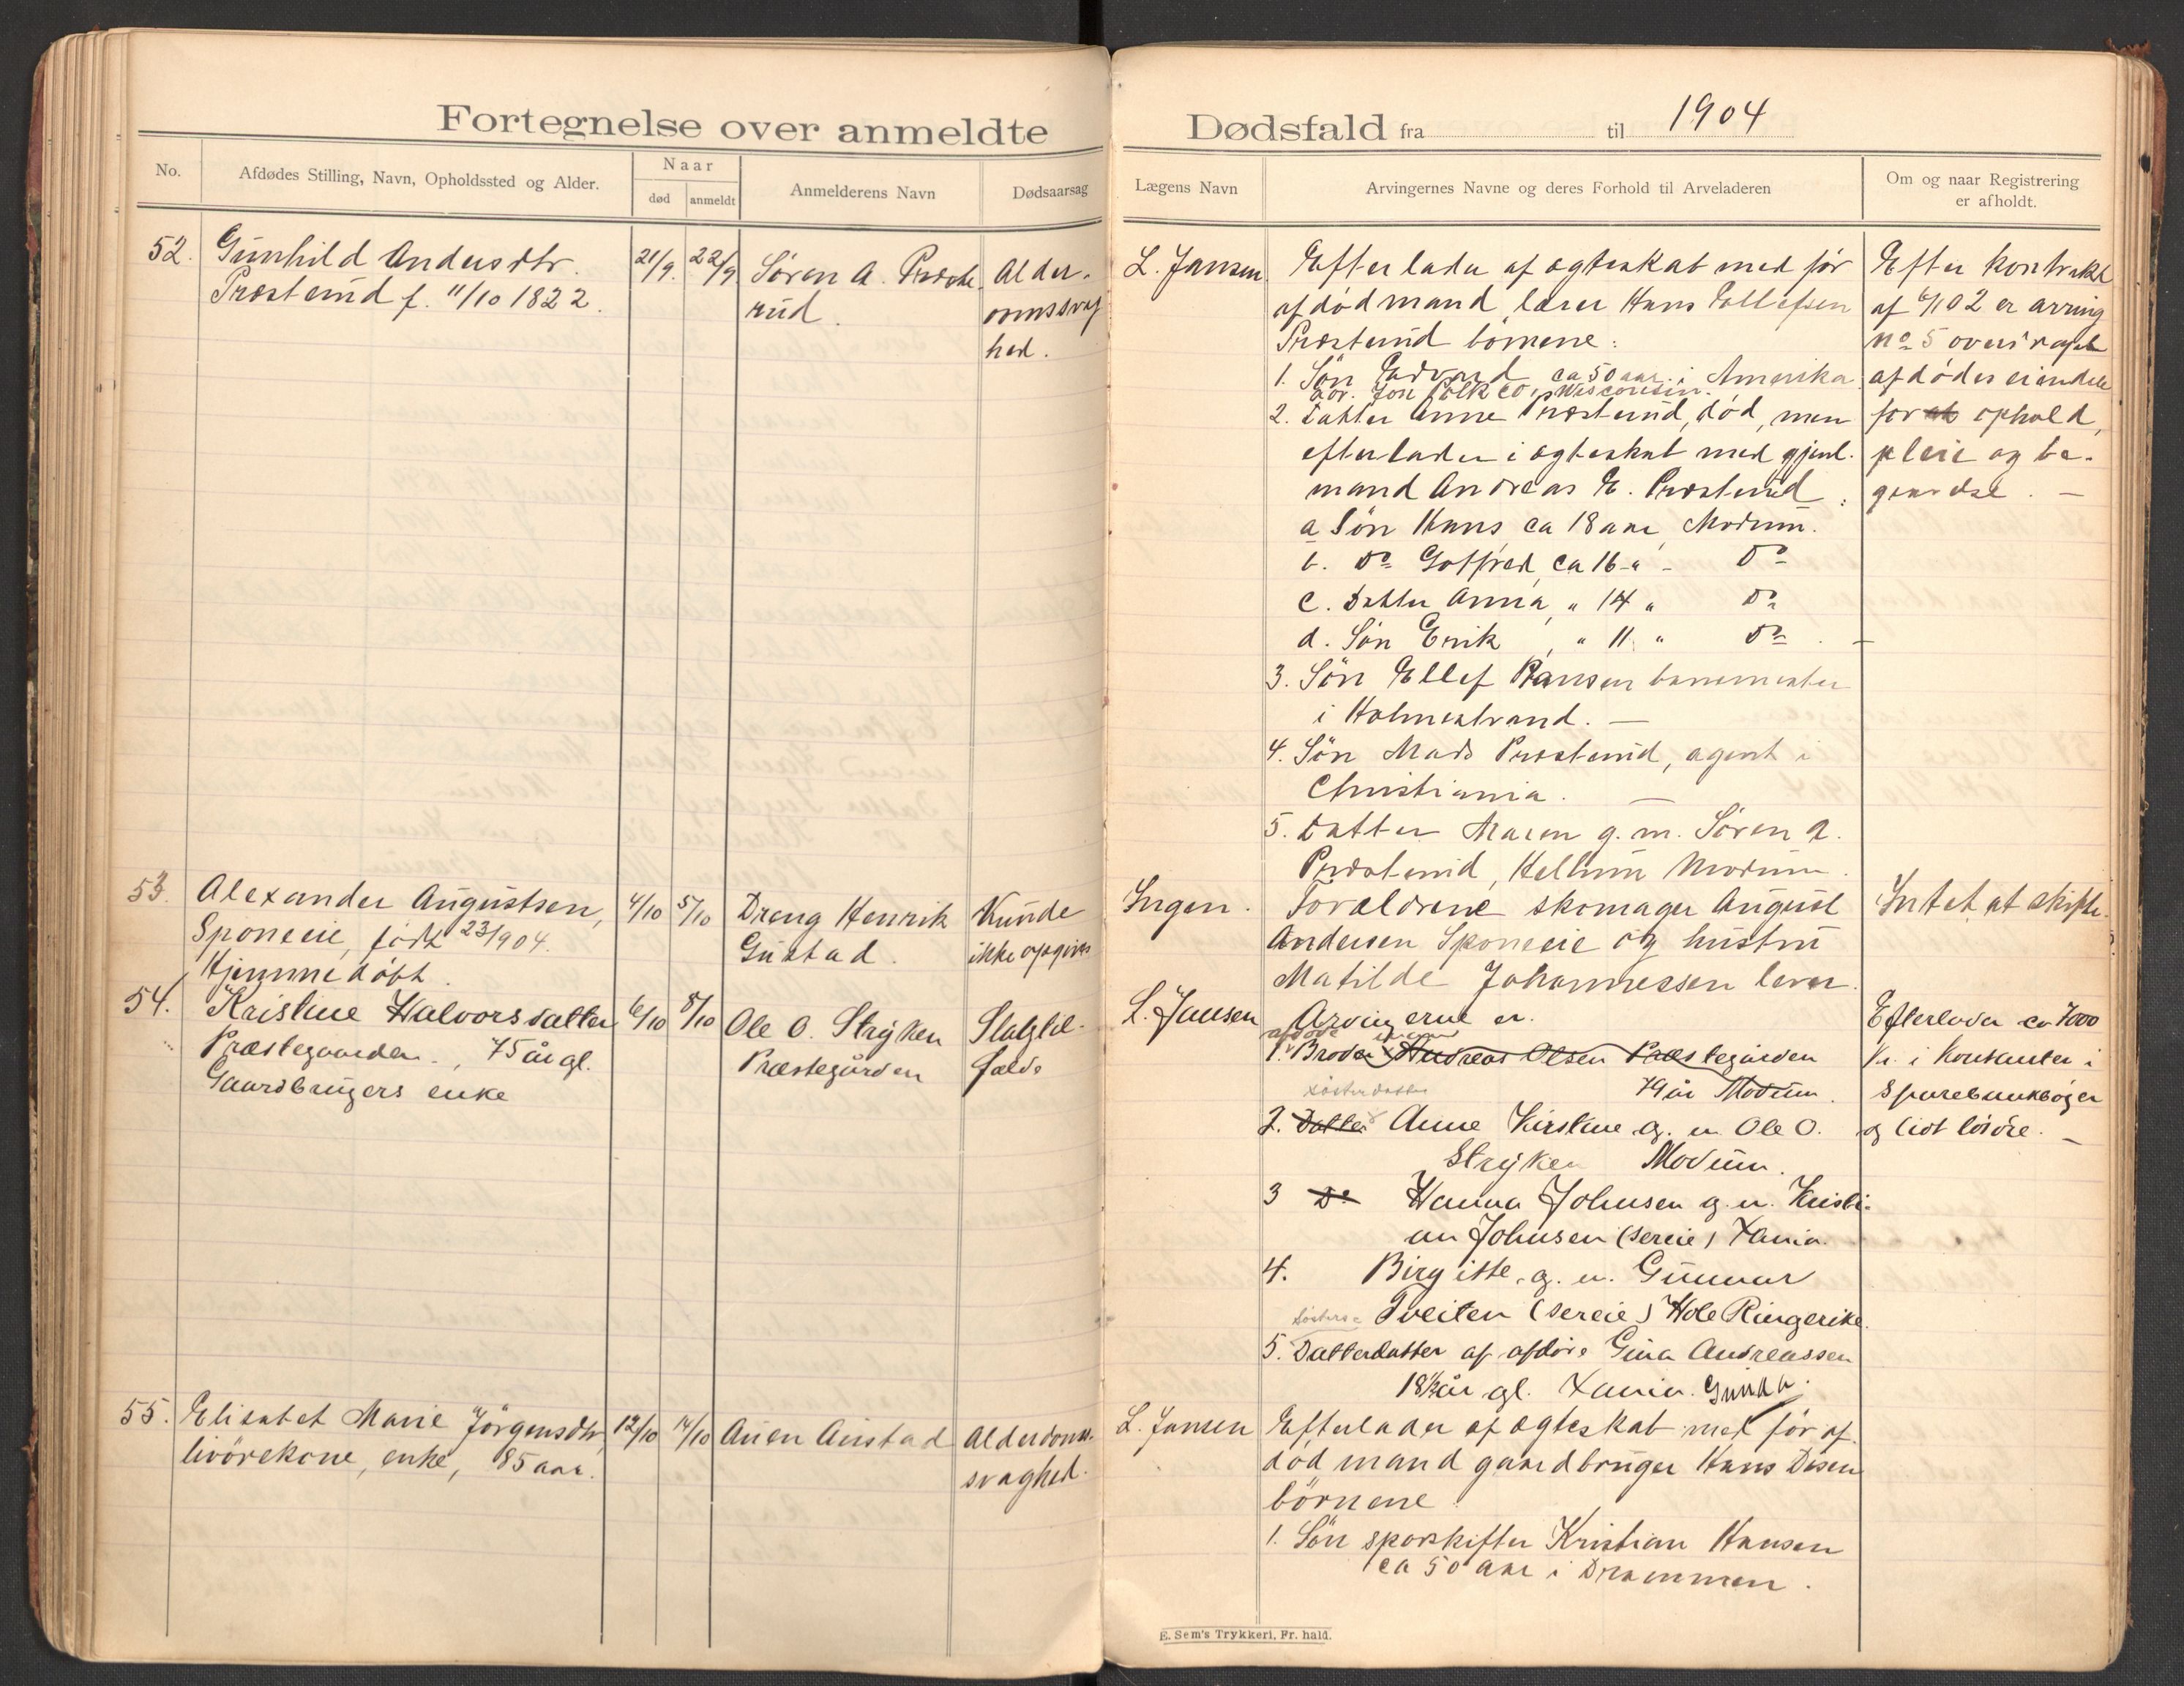 Fortegnelse over anmeldte
No.
Afdødes Stilling, Navn, Opholdssted og Alder.
Naar
død
anmeldt
Anmelderens Navn
Dødsaarsag
52.
Gunhild Andersdtr.
Præsterud f. 11/10 1822.
21/9.
22/9
Søren A. Præste
rud.
Alder-
domssvag
hed.
53.
Alexander Augustsen,
Sponeeie, født 23/904.
Hjemmedøbt.
4/10
5/10
Dreng Henrik
Gustad.
Kunde
ikke opgives
54.
Kristine Halvorsdatter
Præstegaarden., 75 år gl.
Gaardbrugers enke
6/10
8/10
Ole O. Stryken
Præstegården
Slagtil-
fælde
55.
Elisabet Marie Jörgensdtr,
livörekone, enke, 85 aar.
12/10
14/10
Auen Austad
Alderdoms-
svaghed.
Dødsfald fra til 1904
Lægens Navn
Arvingernes Navne og deres Forhold til Arveladeren
Om og naar Registrering
er afholdt.
L. Jansen
Efterlader af ægteskab med før
afdød mand, lærer Hans Ellefsen
Præsterud børnene:
1. Søn Edvard ca 50 aar i Amerika
adr. Polk Co, Wisconsin.
2. Datter Anne Præsterud, død, men
efterlader i ægteskab med gjenl.
mand Andreas E. Præsterud:
a Søn Hans, ca 18 aar, Modum.
b. Do Gotfred, ca 16 " - Do
c. Datter Anna, " 14 " Do
d. Søn Erik, " 11 " Do. -
3. Søn Ellef Hansen banemester
i Holmestrand. -
4. Søn Mads Præsterud, agent i
Christiania. -
5. Datter Maren g. m. Søren A.
Præsterud, Hellum Modum.
Efter kontrakt
af 6/1 02 er arving
no 5 overdraget
afdødes eiendele
for at ophold,
pleie og be-
gravelse. -
Ingen.
Forældrene skomager August
Andersen Sponeeie og hustru
Matilde Johannessen lever.
Intet at skifte.
L. Jansen
Arvingerne er.
afdøde
1. Broder Andreas Olsen Præstegården
79 år Modum.
søsterdatter
2. Datter Anne Kirstine g. m. Ole O.
Stryken Modum.
3 Do Hanna Johnsen g. m. Kristi-
an Johnsen (sereie) Xania.
4. Birgitte g. m. Gunnar
Tveiten (sereie) Hole Ringerike.
søsters
5. Datterdatter af afdøde Gina Andreassen
18½ år gl. Xania. Gunda.
Efterlader ca 7000
Kr. i Kontanter i
Sparebankbøger
og lidt løsøre. -
L. Jansen
Efterlader af ægteskab med før af-
död mand gaardbruger Hans Disen
börnene
1. Sön sporskifter Kristian Hansen
ca 50 aar i Drammen.
E. Sem's Trykkeri, Fr. hald.